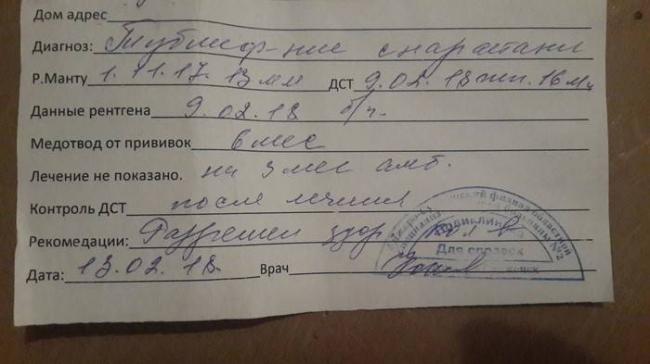 Дом адрес
Диагноз: Тубинф-ние с нарастани
Р.Манту 1.11.17. 13мм ДСТ 9.02.18 16м
Данные рентгена 9.02.18 б/ч.
Медотвод от прививок 6 мес
Лечение не показано. на 3 мес амб.
Контроль ДСТ после лечения
Рекомедации: Разрешен
Дата: 13.02.18. Врач
Поликлиника
Для справок